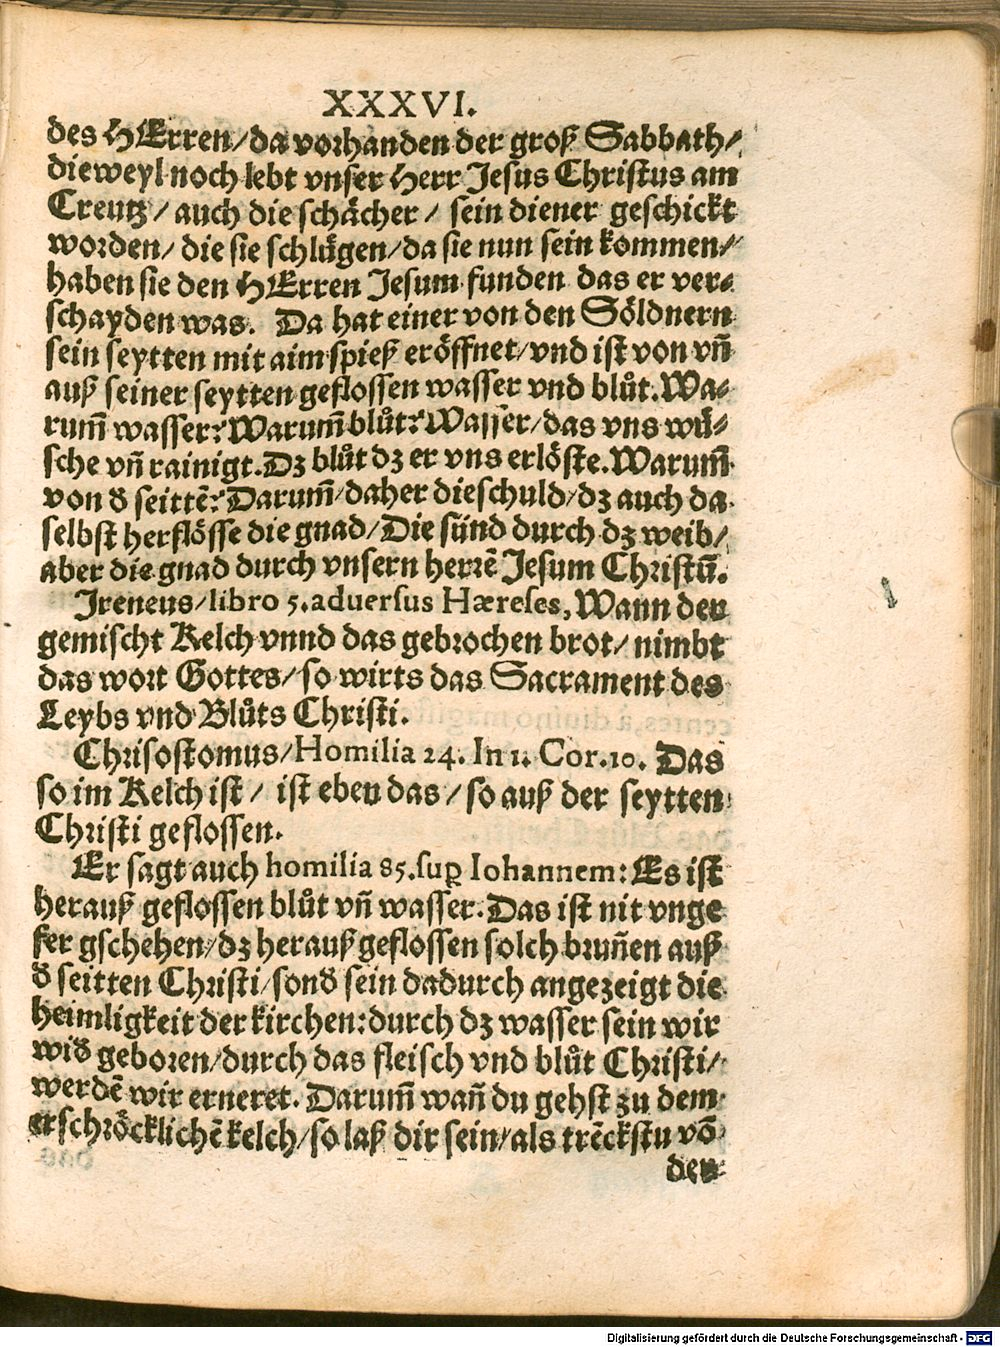 XXXVI.
des HErren/da vorhanden der groß Sabbath/
dieweyl noch lebt vnser Herr Jesus Christus am
Creutz/ auch die schächer/ sein diener geschickt
worden/ die sie schlůgen/da sie nun sein kommen/
haben sie den HErren Jesum funden das er ver⸗
schayden was. Da hat einer von den Söldnern
sein seytten mit aim spieß eröffnet/vnd ist von vñ
auß seiner seytten geflossen wasser vnd blůt. Wa⸗
rum̃ wasser? Warum̃ blůt? Wasser/das vns wü⸗
sche vñ rainigt. Dz blůt dz er vns erlöste. Warum̃
von d̕ seittẽ? Darum̃/daher die schuld/dz auch da
selbst herflösse die gnad/Die sünd durch dz weib/
aber die gnad durch vnsern herrẽ Jesum Christũ.
Jreneus/libro 5. aduersus Hæreses, Wann der
gemischt Kelch vnnd das gebrochen brot/ nimbt
das wort Gottes/so wirts das Sacrament des
Leybs vnd Blůts Christi.
Chrisostomus/Homilia 24. In 1. Cor. 10. Das
so im Kelch ist/ ist eben das/so auß der seytten
Christi geflossen.
Er sagt auch homilia 85. suꝑ Iohannem: Es ist
herauß geflossen blůt vñ wasser. Das ist nit vnge
fer gschehen/dz herauß geflossen solch brun̄en auß
d̕ seitten Christi/sond̕ sein dadurch angezeigt die
heimligkeit der kirchen: durch dz wasser sein wir
wid̕ geboren/durch das fleisch vnd blůt Christi/
werdẽ wir erneret. Darum̃ wañ du gehst zu dem
erschröcklichẽ kelch/so laß dir sein/als trẽckstu võ
der
Digitalisierung gefördert durch die Deutsche Forschungsgemeinschaft - DFG